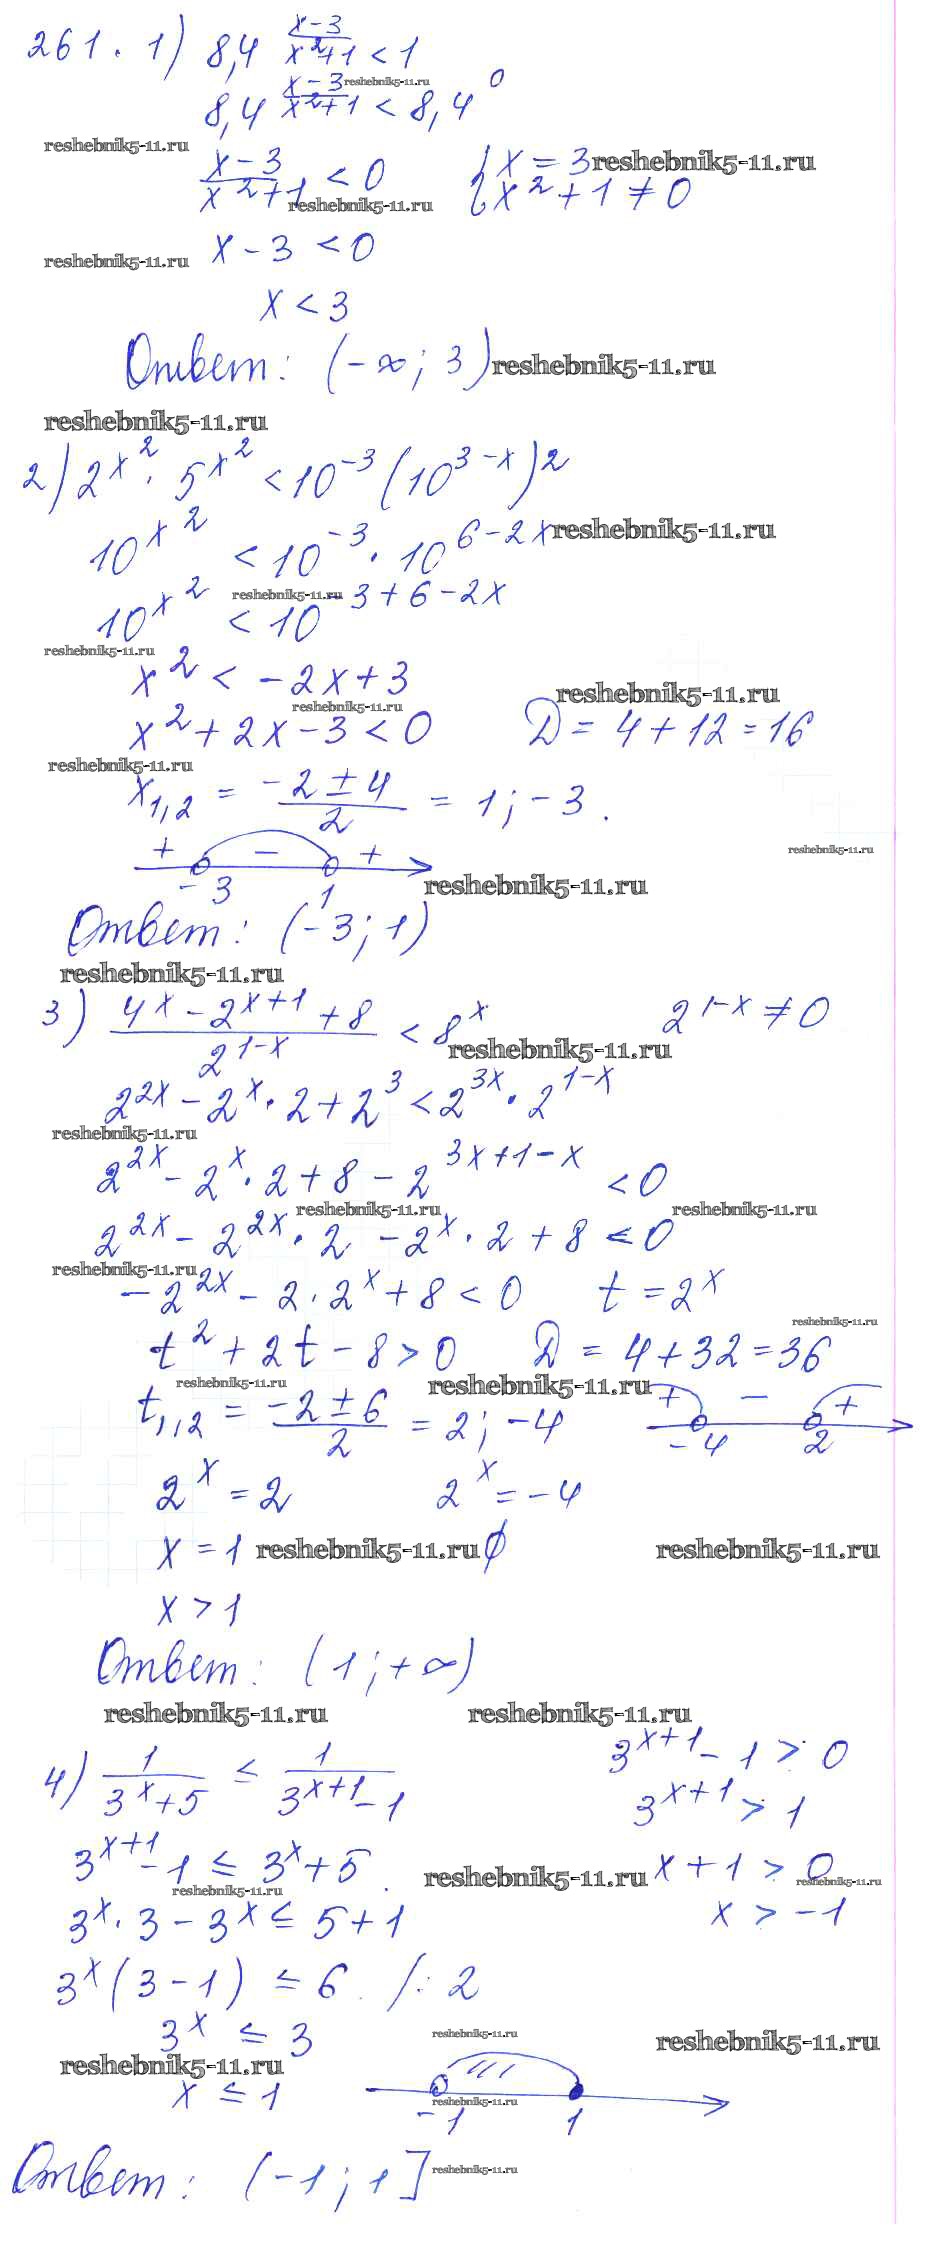 261. 1) 8,4^{\frac{x-3}{x^2+1}} < 1
8,4^{\frac{x-3}{x^2+1}} < 8,4^0 reshebnik5-11.ru
reshebnik5-11.ru
\frac{x-3}{x^2+1} < 0 { x = 3 reshebnik5-11.ru
x^2+1 ≠ 0 reshebnik5-11.ru
reshebnik5-11.ru x - 3 < 0
x < 3
Ответ: (-∞; 3) reshebnik5-11.ru
reshebnik5-11.ru
2) 2^{x^2} · 5^{x^2} < 10^{-3} (10^{3-x})^2
10^{x^2} < 10^{-3} · 10^{6-2x} reshebnik5-11.ru
10^{x^2} < 10^{-3+6-2x} reshebnik5-11.ru
reshebnik5-11.ru
x^2 < -2x+3 reshebnik5-11.ru
reshebnik5-11.ru
x^2 + 2x - 3 < 0 D = 4 + 12 = 16
reshebnik5-11.ru
x_{1,2} = \frac{-2 ± 4}{2} = 1; -3.
+ - + reshebnik5-11.ru
-3 1 reshebnik5-11.ru
Ответ: (-3; 1)
reshebnik5-11.ru
3) \frac{4^x - 2^{x+1} + 8}{2^{1-x}} < 8^x 2^{1-x} ≠ 0
reshebnik5-11.ru
2^{2x} - 2^x · 2 + 2^3 < 2^{3x} · 2^{1-x}
reshebnik5-11.ru
2^{2x} - 2^x · 2 + 8 - 2^{3x+1-x} < 0
reshebnik5-11.ru reshebnik5-11.ru
2^{2x} - 2^{2x} · 2 - 2^x · 2 + 8 < 0
reshebnik5-11.ru
-2^{2x} - 2 · 2^x + 8 < 0 t = 2^x
reshebnik5-11.ru
t^2 + 2t - 8 > 0 D = 4 + 32 = 36
reshebnik5-11.ru reshebnik5-11.ru
t_{1,2} = \frac{-2 ± 6}{2} = 2; -4 + - +
-4 2
2^x = 2 2^x = -4
x = 1 reshebnik5-11.ru ∅ reshebnik5-11.ru
x > 1
Ответ: (1; +∞)
reshebnik5-11.ru reshebnik5-11.ru
4) \frac{1}{3^x+5} ≤ \frac{1}{3^{x+1}-1} 3^{x+1} - 1 > 0
3^{x+1} > 1
3^{x+1} - 1 ≤ 3^x + 5. reshebnik5-11.ru x + 1 > 0
reshebnik5-11.ru reshebnik5-11.ru
3^x · 3 - 3^x ≤ 5 + 1 x > -1
3^x (3 - 1) ≤ 6 /: 2
3^x ≤ 3 reshebnik5-11.ru reshebnik5-11.ru
reshebnik5-11.ru
x ≤ 1 reshebnik5-11.ru
-1 1
Ответ: (-1; 1] reshebnik5-11.ru